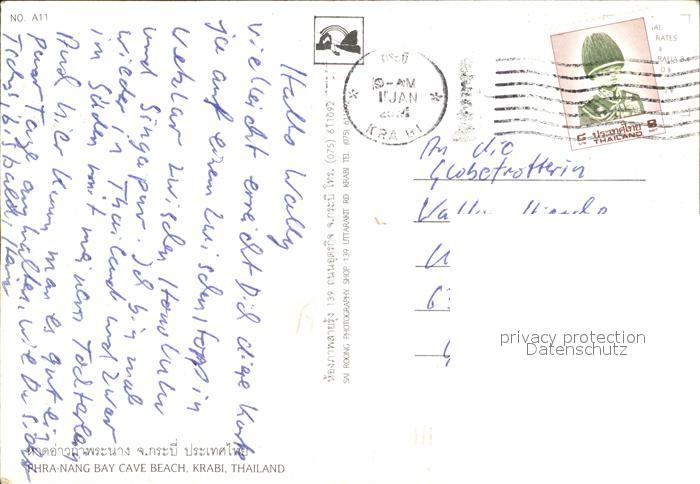 NO. A11
Hallo Wally
vielleicht erreicht Dich diese Karte
ja auf einem Zwischenstopp in
Wetzlar zwischen Honolulu
und Singapur. Ich bin mal
wieder in Thailand und zwar
im Süden mit meinem Töchterlein
Auch hier kann man es gut ein
paar Tage aushalten, wie Du siehst
Tschüs, bis bald,
หาดอ่าวถ้ำพระนาง จ.กระบี่ ประเทศไทย
PHRA-NANG BAY CAVE BEACH, KRABI, THAILAND
ห้องภาพสายรุ้ง 139 ถนนอุตรกิจ จ.กระบี่ โทร. (075) 611092
SAI ROONG PHOTOGRAPHY SHOP 139 UTTARAKIT RD KRABI TEL (075)
กระบี่
9-AM
JAN
KRABI
ประเทศไทย
THAILAND
An die
Globetrotterin
privacy protection
Datenschutz